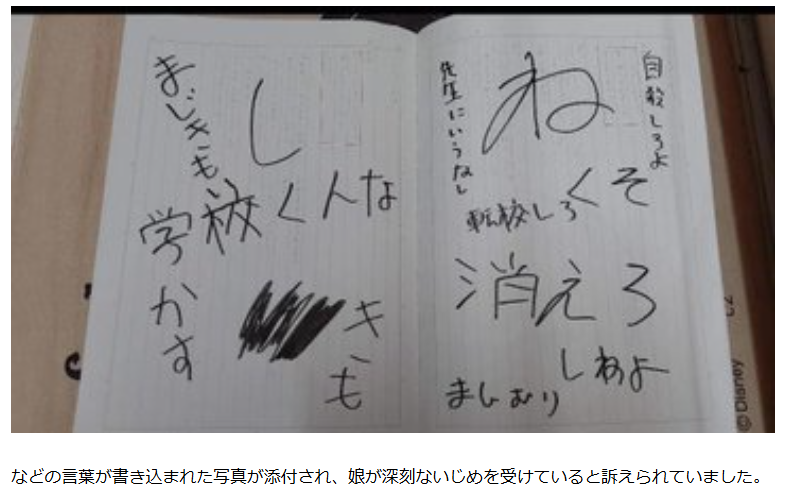 まじきもい
し
学校くんな
かす
きも
自殺しろよ
ね
先生にいうなし
くそ
転校しろ
消えろ
しねよ
まじむり
©Disney
などの言葉が書き込まれた写真が添付され、娘が深刻ないじめを受けていると訴えられていました。